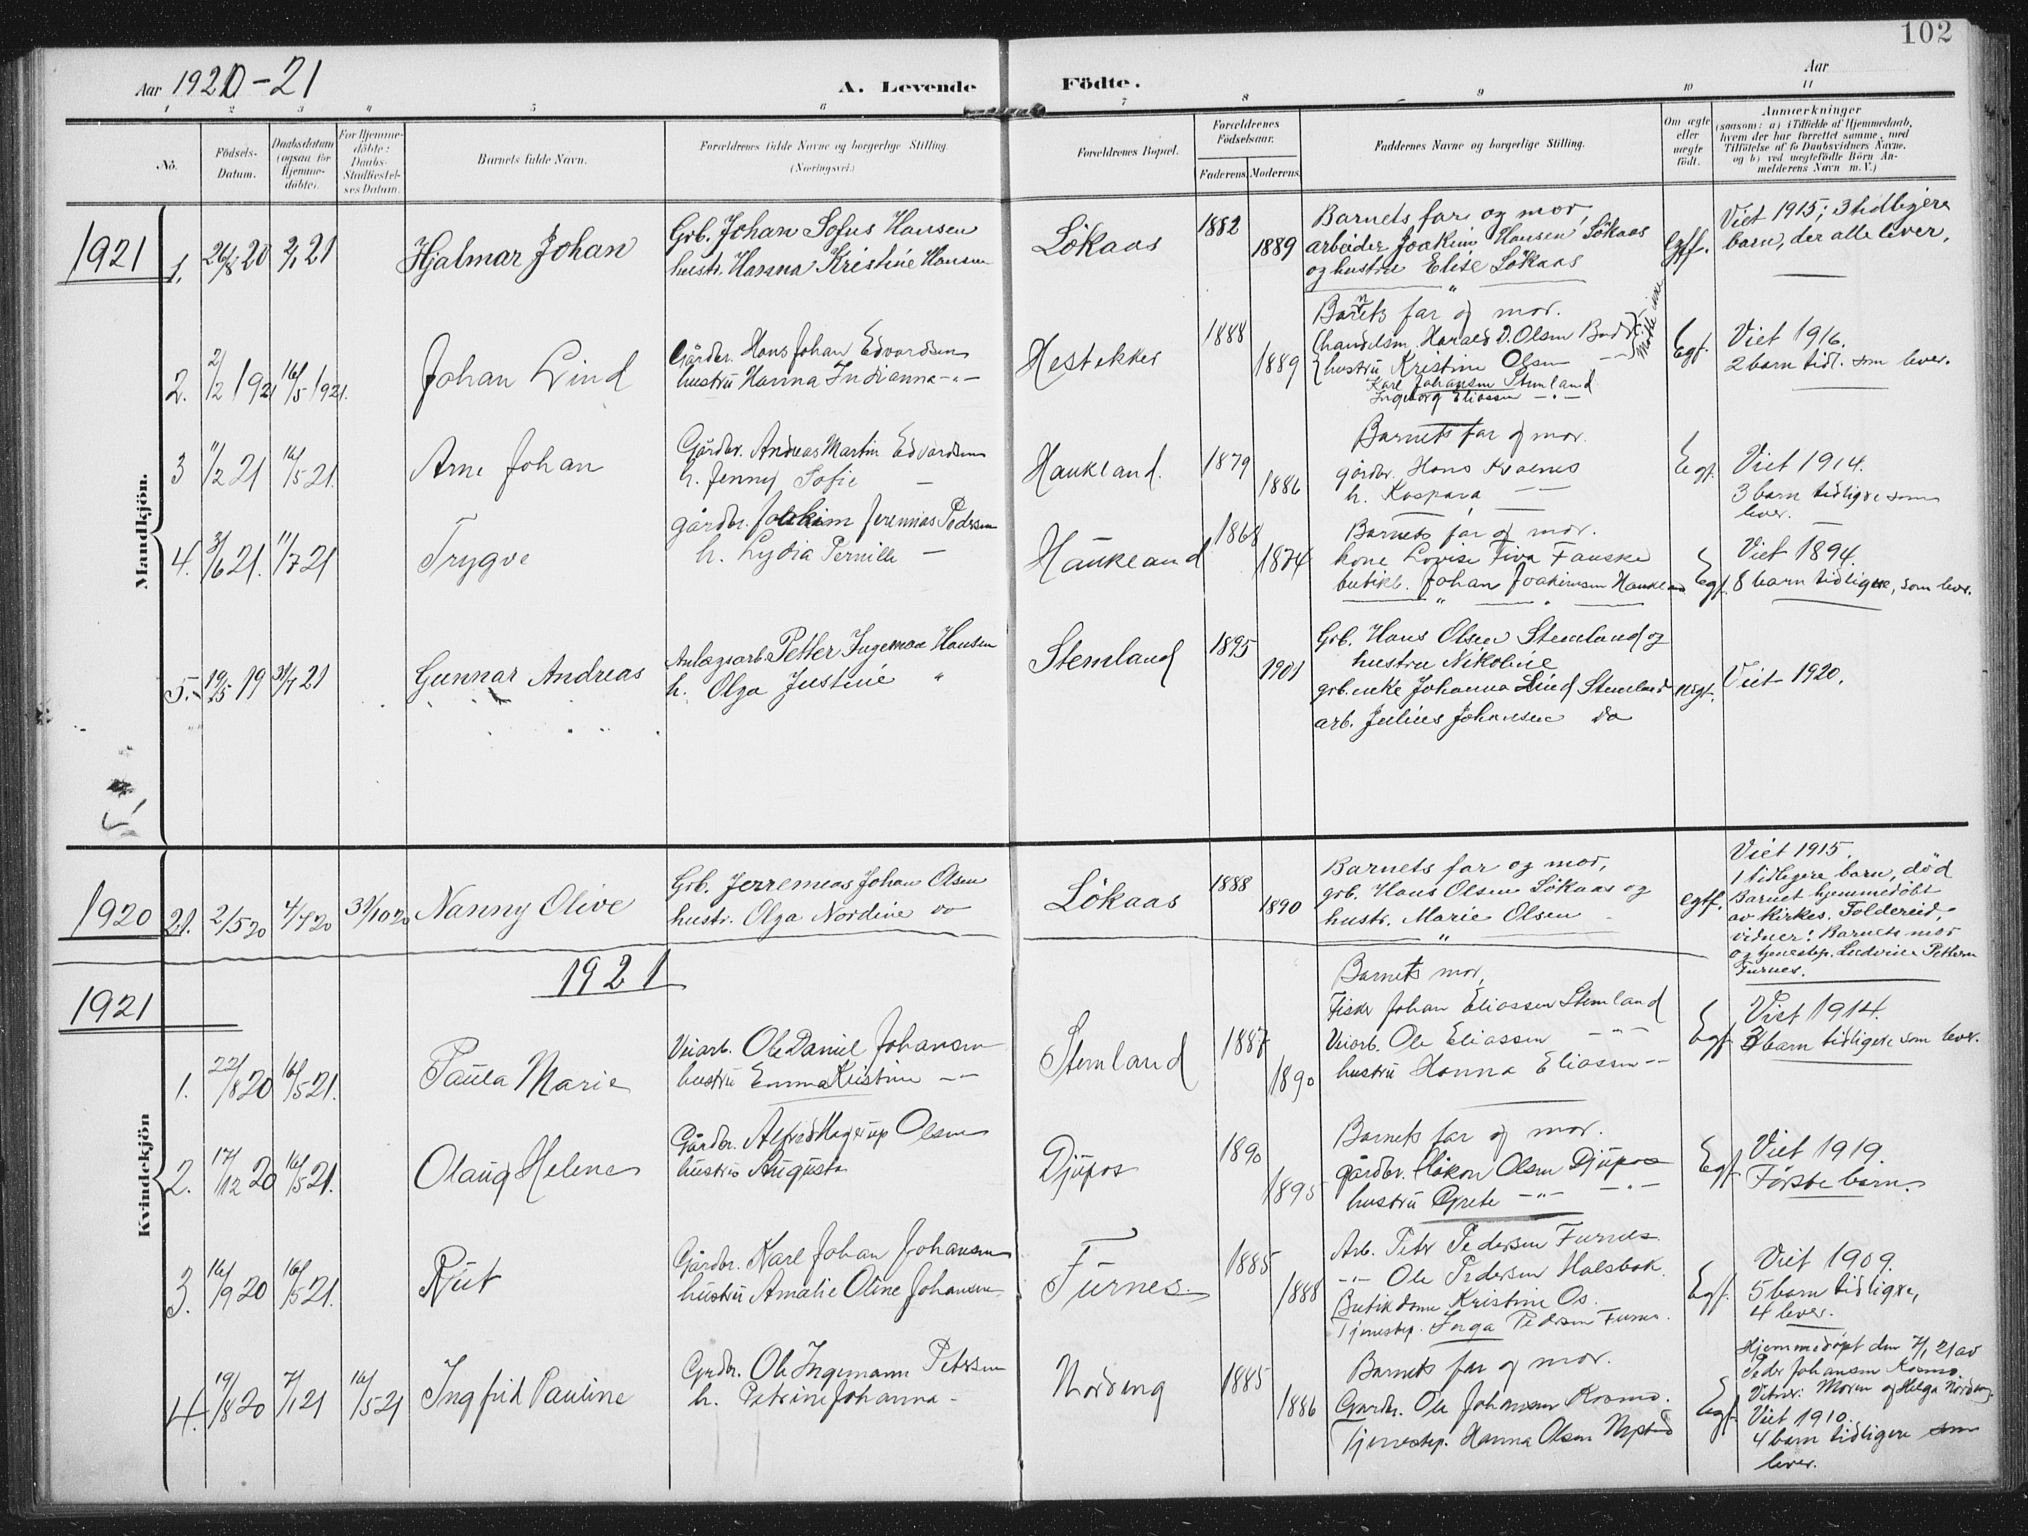 102
Aar 1920-21
A. Levende Födte.
Aar
1 2 3 4 5 6 7 8 9 10 11
No.
Födsels-Datum.
Daabsdatum (ogsaa for Hjemmedöbte).
For Hjemmedöbte: Daabs-Stadfestelses Datum.
Barnets fulde Navn.
Forældrenes fulde Navne og borgerlige Stilling.
(Næringsvei.)
Forældrenes Bopæl.
Forældrenes Födselsaar.
Faderens. Moderens.
Faddernes Navne og borgerlige Stilling.
Om ægte eller uægte födt.
Anmærkninger
(saasom: a) i Tilfælde af Hjemmedaab, hvem der har forrettet samme, med Tilföielse af to Daabsvidners Navne, og b) ved uegtefödte Börn Anmelderens Navn m. V.)
Mandkjön.
1921
1. 26/8 20 2/1 21
Hjalmar Johan
Grb. Johan Sofus Hansen
hustr. Hanna Kristine Hansen
Lökaas
1882
1889
Barnets far og mor,
arbeider Joakim Hansen Lökaas
og hustru Elise Lökaas
egtf.
Viet 1915; 3 tidligere
barn, der alle lever.
2. 2/2 1921 16/5 1921.
Johan Lind
Gårdbr. Hans Johan Edvardsen
hustru Hanna Indianna -"-
Hestekker
1888
1889
Barnets far og mor.
handelsm. Harald D. Olsen Bodø
hustru Kristine Olsen
Møtte ikke
Karl Johansen Stemland
Ingeborg Eliassen -"-
Egt.
Viet 1916.
2 barn tidl. som lever.
3 11/2 21 16/5 21.
Arne Johan
Gårdbr. Andreas Martin Edvardsen
h. Jenny Sofie —
Haukland.
1879
1886
Barnets far og mor.
gårdbr. Hans Kvalnes
h. Kaspara — —
Egt.
Viet 1914.
3 barn tidligere som
lever.
4. 3/6 21. 11/7 21
Trygve
gårdbr. Joakim Jeremias Pedersen
h. Lydia Pernille —
Haukland
1868
1874
Barnets far og mor.
kone Lovise Fauske
butikb. Johan Joakimsen Haukland
Egt.
Viet 1894.
8 barn tidligere, som lever.
5. 19/5 19 31/7 21
Gunnar Andreas
Anlægsarb. Petter Ingeman Hansen
h. Olga Justine "
Stemland
1895
1901
Grb. Hans Olsen Stemland og
hustru Nikoline
grb.enke Johanna Lind Stemland
arb. Julius Johansen do
uegt.
Viet 1920.
Kvindekjön
1920
21. 2/5 20 4/7 20 31/10 20
Nanny Olive
Grb. Jerremias Johan Olsen
hustr. Olga Nordine do
Lökaas
1888
1890
Barnets far og mor,
grb. Hans Olsen Lökaas og
hustr. Marie Olsen
egtf.
Viet 1915.
1 tidligere barn, död
Barnet hjemmedöbt
av kirkes. Foldereid,
vidner: Barnets mor
og tjenestep. Ludvine Pettersen
Furnes.
1921
1921
1. 22/8 20 16/5 21.
Paula Marie
Veiarb. Ole Daniel Johansen
hustru Emma Kristine -"-
Stemland
1887
1890
Barnets mor,
Fisker Johan Eliassen Stemland
Veiarb. Ole Eliassen -"-
hustru Hanna Eliassen -"-
Egt.
Viet 1914.
3 barn tidligere som lever.
2. 17/12 20 16/5 21.
Olaug Helene
Gårdbr. Alfred Hagerup Olsen
hustru Augusta
Djupos
1890
1895
Barnets far og mor.
gårdbr. Håkon Olsen Djupos
hustru Grete -"- -"-
Egt.
Viet 1919.
Første barn.
3. 16/9 20 16/5 21.
Rut
Gårdbr. Karl Johan Johansen
hustru Amalie Oline Johansen
Furnes.
1885
1888
Arb. Peter Pedersen Furnes
-"- Ole Pedersen Halsbak.
Butikdame Kristine Os.
Tjenestep. Inga Pedersen Furnes.
Egt.
Viet 1909.
5 barn tidligere,
4 lever.
4. 19/8 20 7/1 21 16/5 21
Ingfrid Pauline
Grdbr. Ole Ingemann Petersen
h. Petrine Johanna -
Nordeng
1885
1886
Barnets far og mor.
Gardbr. Ole Johansen Kosmo.
Tjenestep. Hanna Olsen Nystad
Egt.
Hjemmedøpt den 7/1 21 av
Peder Johansen Kosmo.
Vitner: Moren og Helga Nordeng
Viet 1910.
4 barn tidligere som
lever.